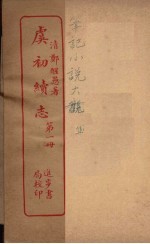 筆記小說大觀 五
清鄭醒愚著
虞初續志 第一冊
進步書局校印